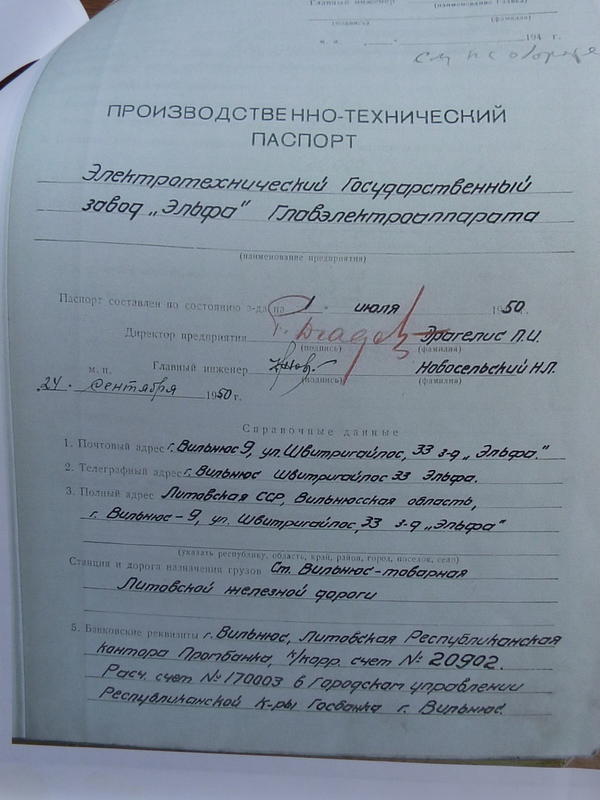 Главный инженер
(наименование главка)
(подпись) (фамилия)
м. п. 194 г.
ПРОИЗВОДСТВЕННО-ТЕХНИЧЕСКИЙ
ПАСПОРТ
Электротехнический Государственный
завод „Эльфа" Главэлектроаппарата
(наименование предприятия)
Паспорт составлен по состоянию з-да на 1 июля 1950 г.
Директор предприятия Эрагелис П.И.
(подпись) (фамилия)
м. п. Главный инженер Новосельский Н.П.
(подпись) (фамилия)
24. сентября 1950 г.
Справочные данные
1. Почтовый адрес г. Вильнюс 9, ул. Швитригайлос, 33 з-д „Эльфа."
2. Телеграфный адрес г. Вильнюс Швитригайлос 33 Эльфа.
3. Полный адрес Литовская ССР, Вильнюсская область,
г. Вильнюс – 9, ул. Швитригайлос, 33 з-д „Эльфа"
(указать республику, область, край, район, город, поселок, село)
Станция и дорога назначения грузов Ст. Вильнюс-товарная
Литовской железной дороги
5. Банковские реквизиты г. Вильнюс, Литовская Республиканская
контора Промбанка, к/корр. счет № 20902.
Расч. счет № 170003 в Городском управлении
Республиканской к-ры Госбанка г. Вильнюс.